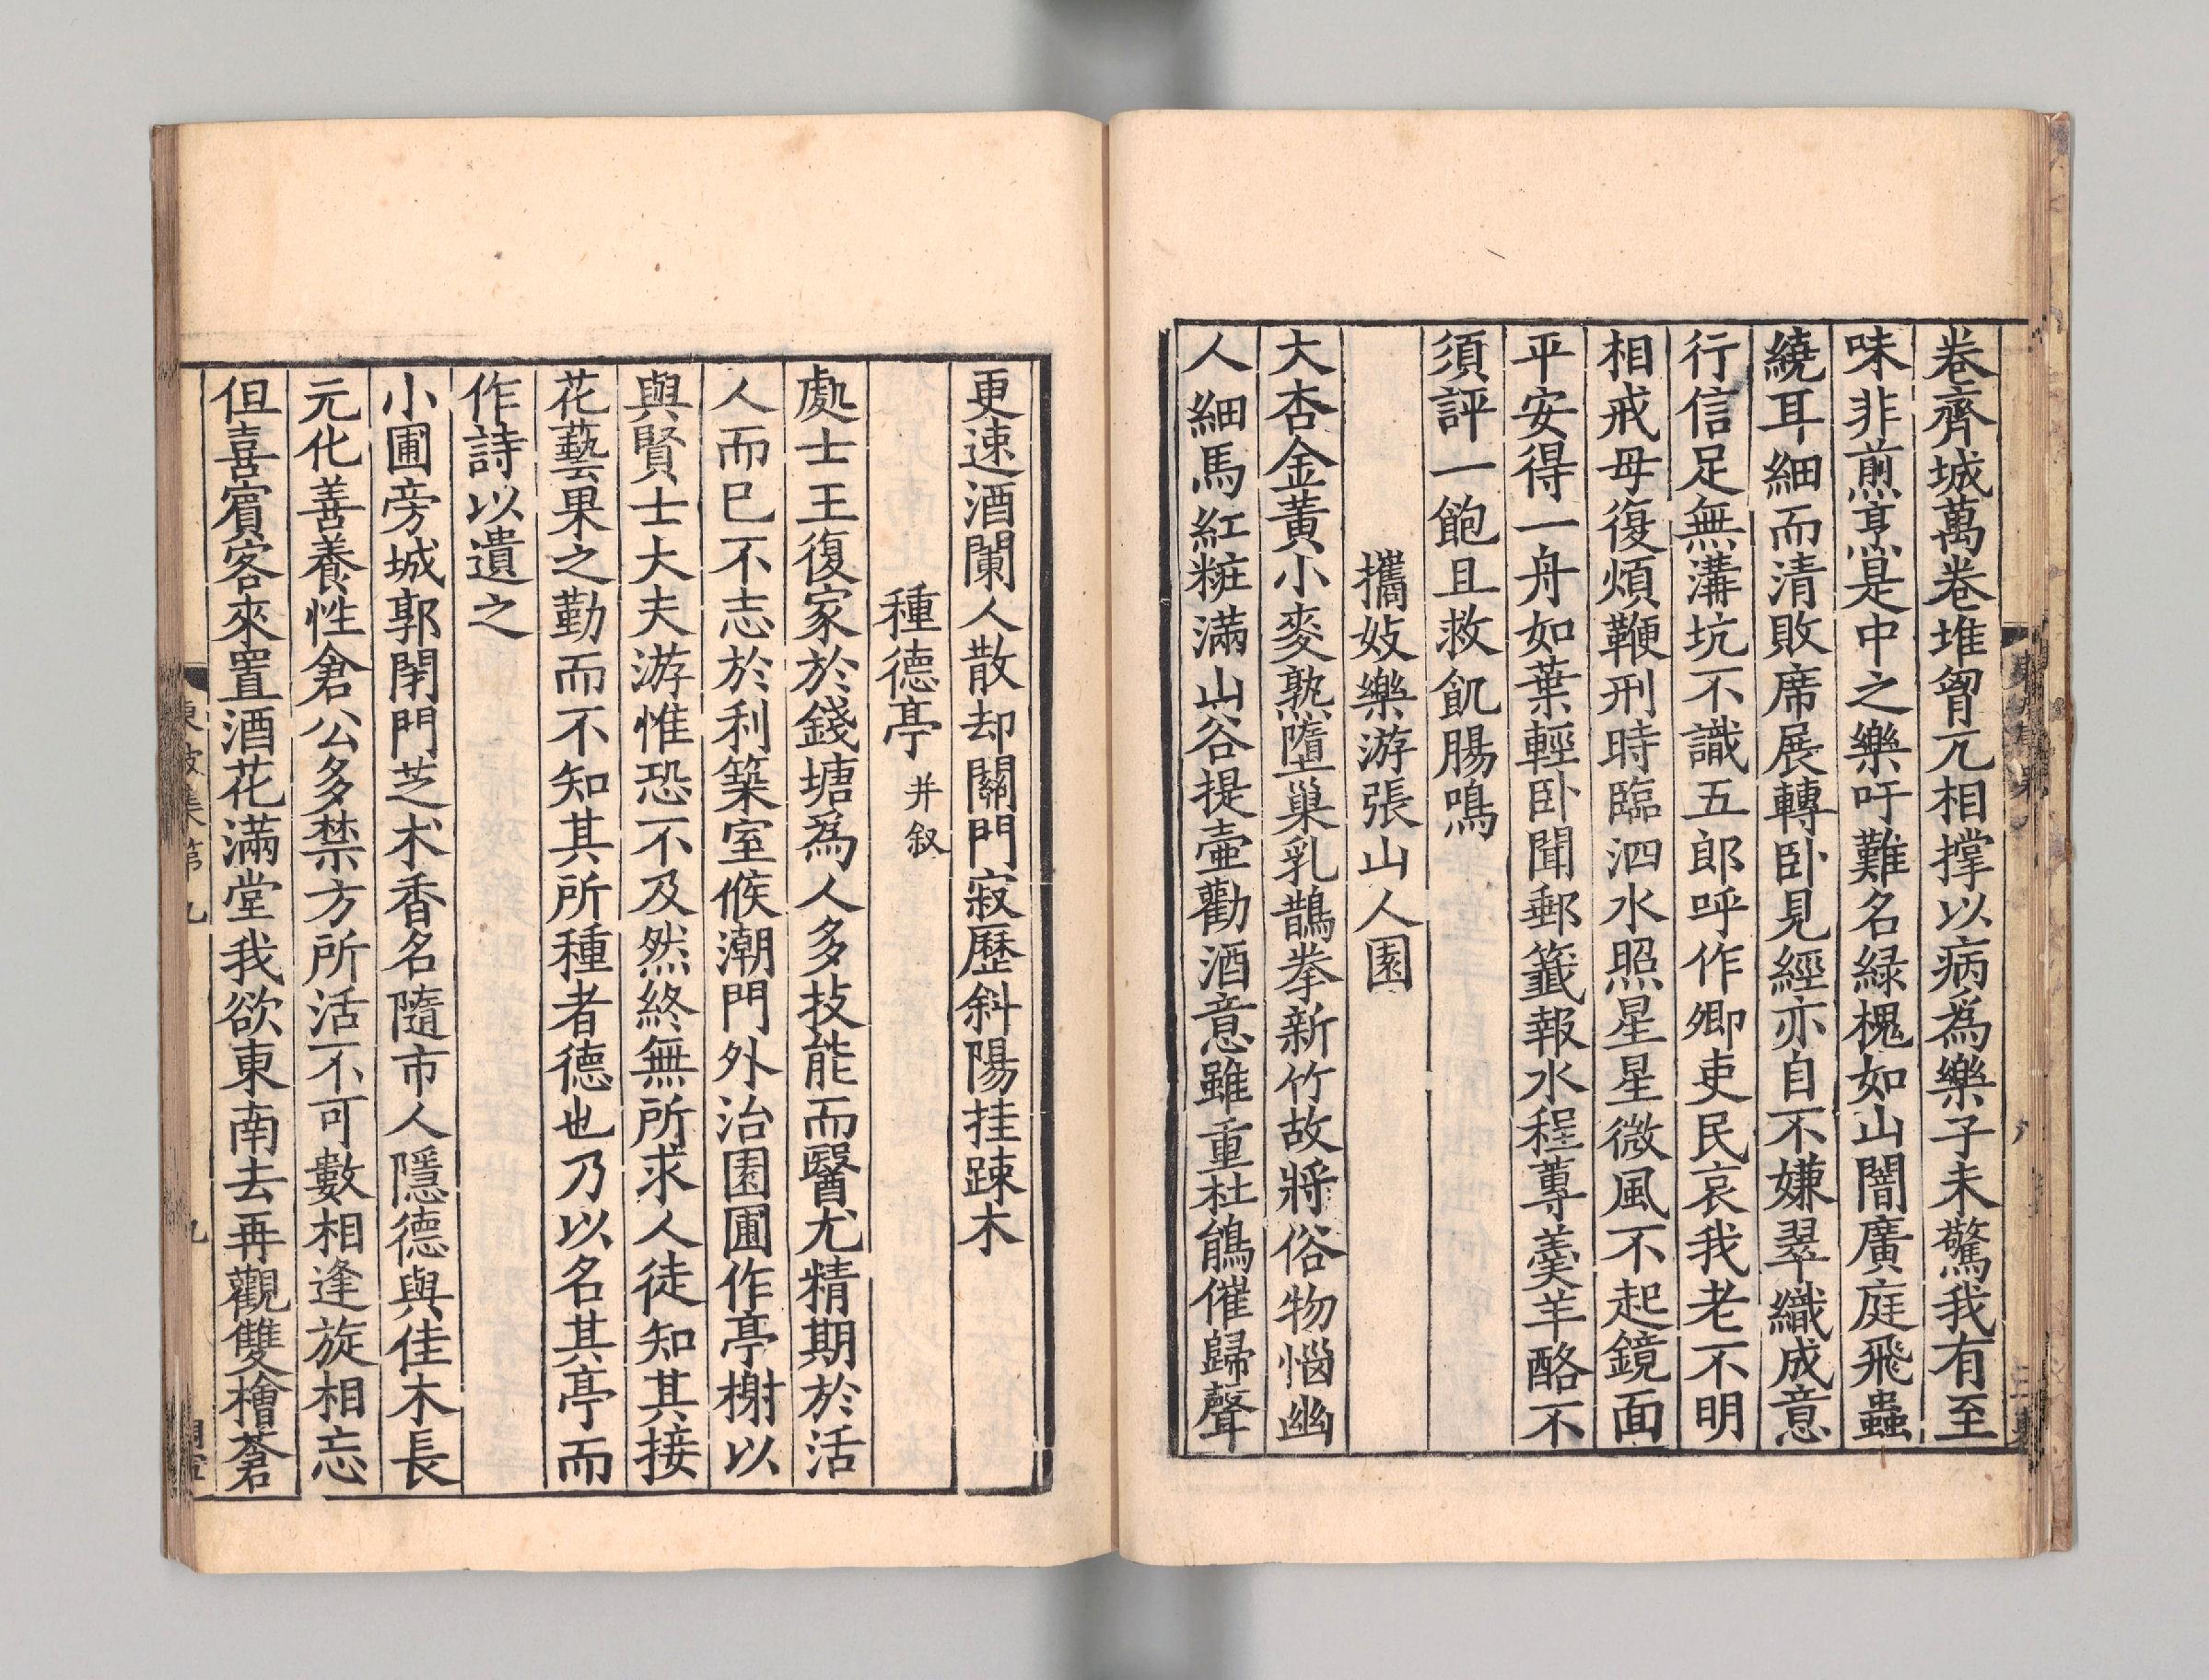 卷齊城萬卷堆胷兀相撑以病爲樂子未驚我有至
味非煎烹是中之樂吁難名緑槐如山闇廣庭飛蟲
繞耳細而清敗席展轉卧見經亦自不嫌翠織成意
行信足無溝坑不識五郎呼作卿吏民哀我老不明
相戒毋復煩鞭刑時臨泗水照星星微風不起鏡面
平安得一舟如葉輕卧聞郵籤報水程蓴羹羊酪不
須評一飽且救飢腸鳴
攜妓樂游張山人園
大杏金黃小麥熟墮巢乳鵲拳新竹故將俗物惱幽
人細馬紅粧滿山谷提壷勸酒意雖重杜鵑催歸聲
更速酒闌人散却關門寂歷斜陽挂踈木
種德亭 并叙
處士王復家於錢塘爲人多技能而醫尤精期於活
人而巳不志於利築室候潮門外治園圃作亭榭以
與賢士大夫游惟恐不及然終無所求人徒知其接
花藝果之勤而不知其所種者德也乃以名其亭而
作詩以遺之
小圃旁城郭閉門芝术香名隨市人隱德與佳木長
元化善養性倉公多禁方所活不可數相逢旋相忘
但喜賓客來置酒花滿堂我欲東南去再觀雙檜蒼
東坡集第九
九